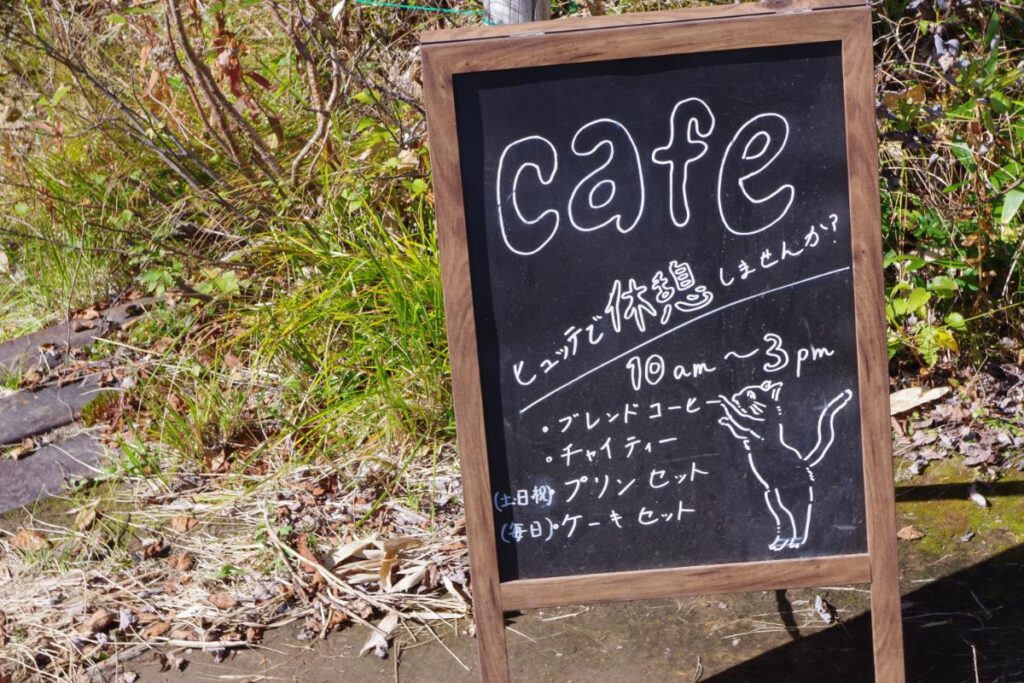 cafe
ヒュッテで休憩しませんか?
10am～3pm
・ブレンドコーヒー
・チャイティー
(土日祝)・プリンセット
(毎日)・ケーキセット